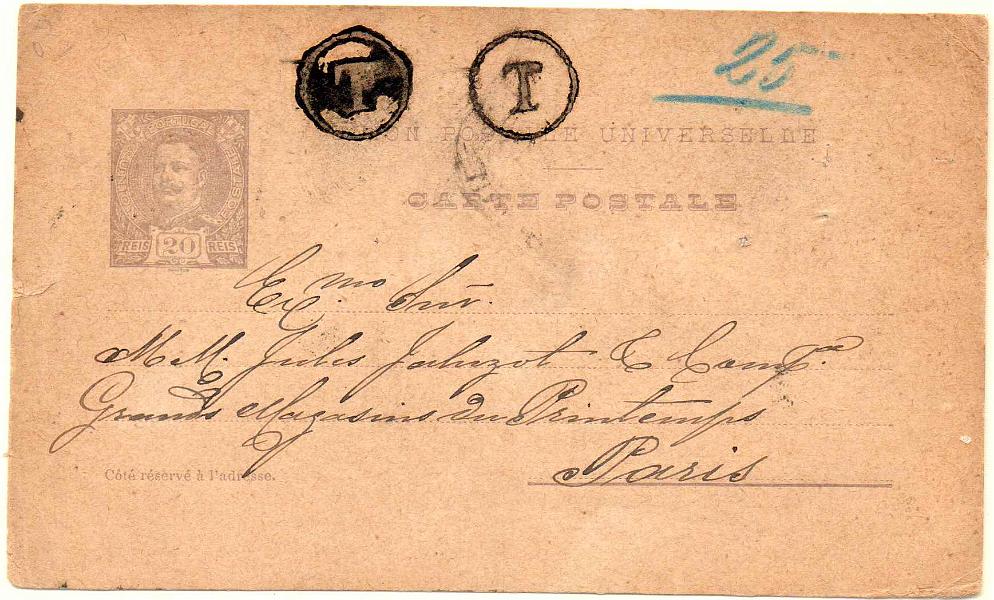 T T 25
UNION POSTALE UNIVERSELLE
CARTE POSTALE
PORTUGAL
REIS 20 REIS
Ex.mo Snr.
M M. Jules Jaluzot & Comp.a
Grands Magasins du Printemps
Paris
Côté réservé à l'adresse.